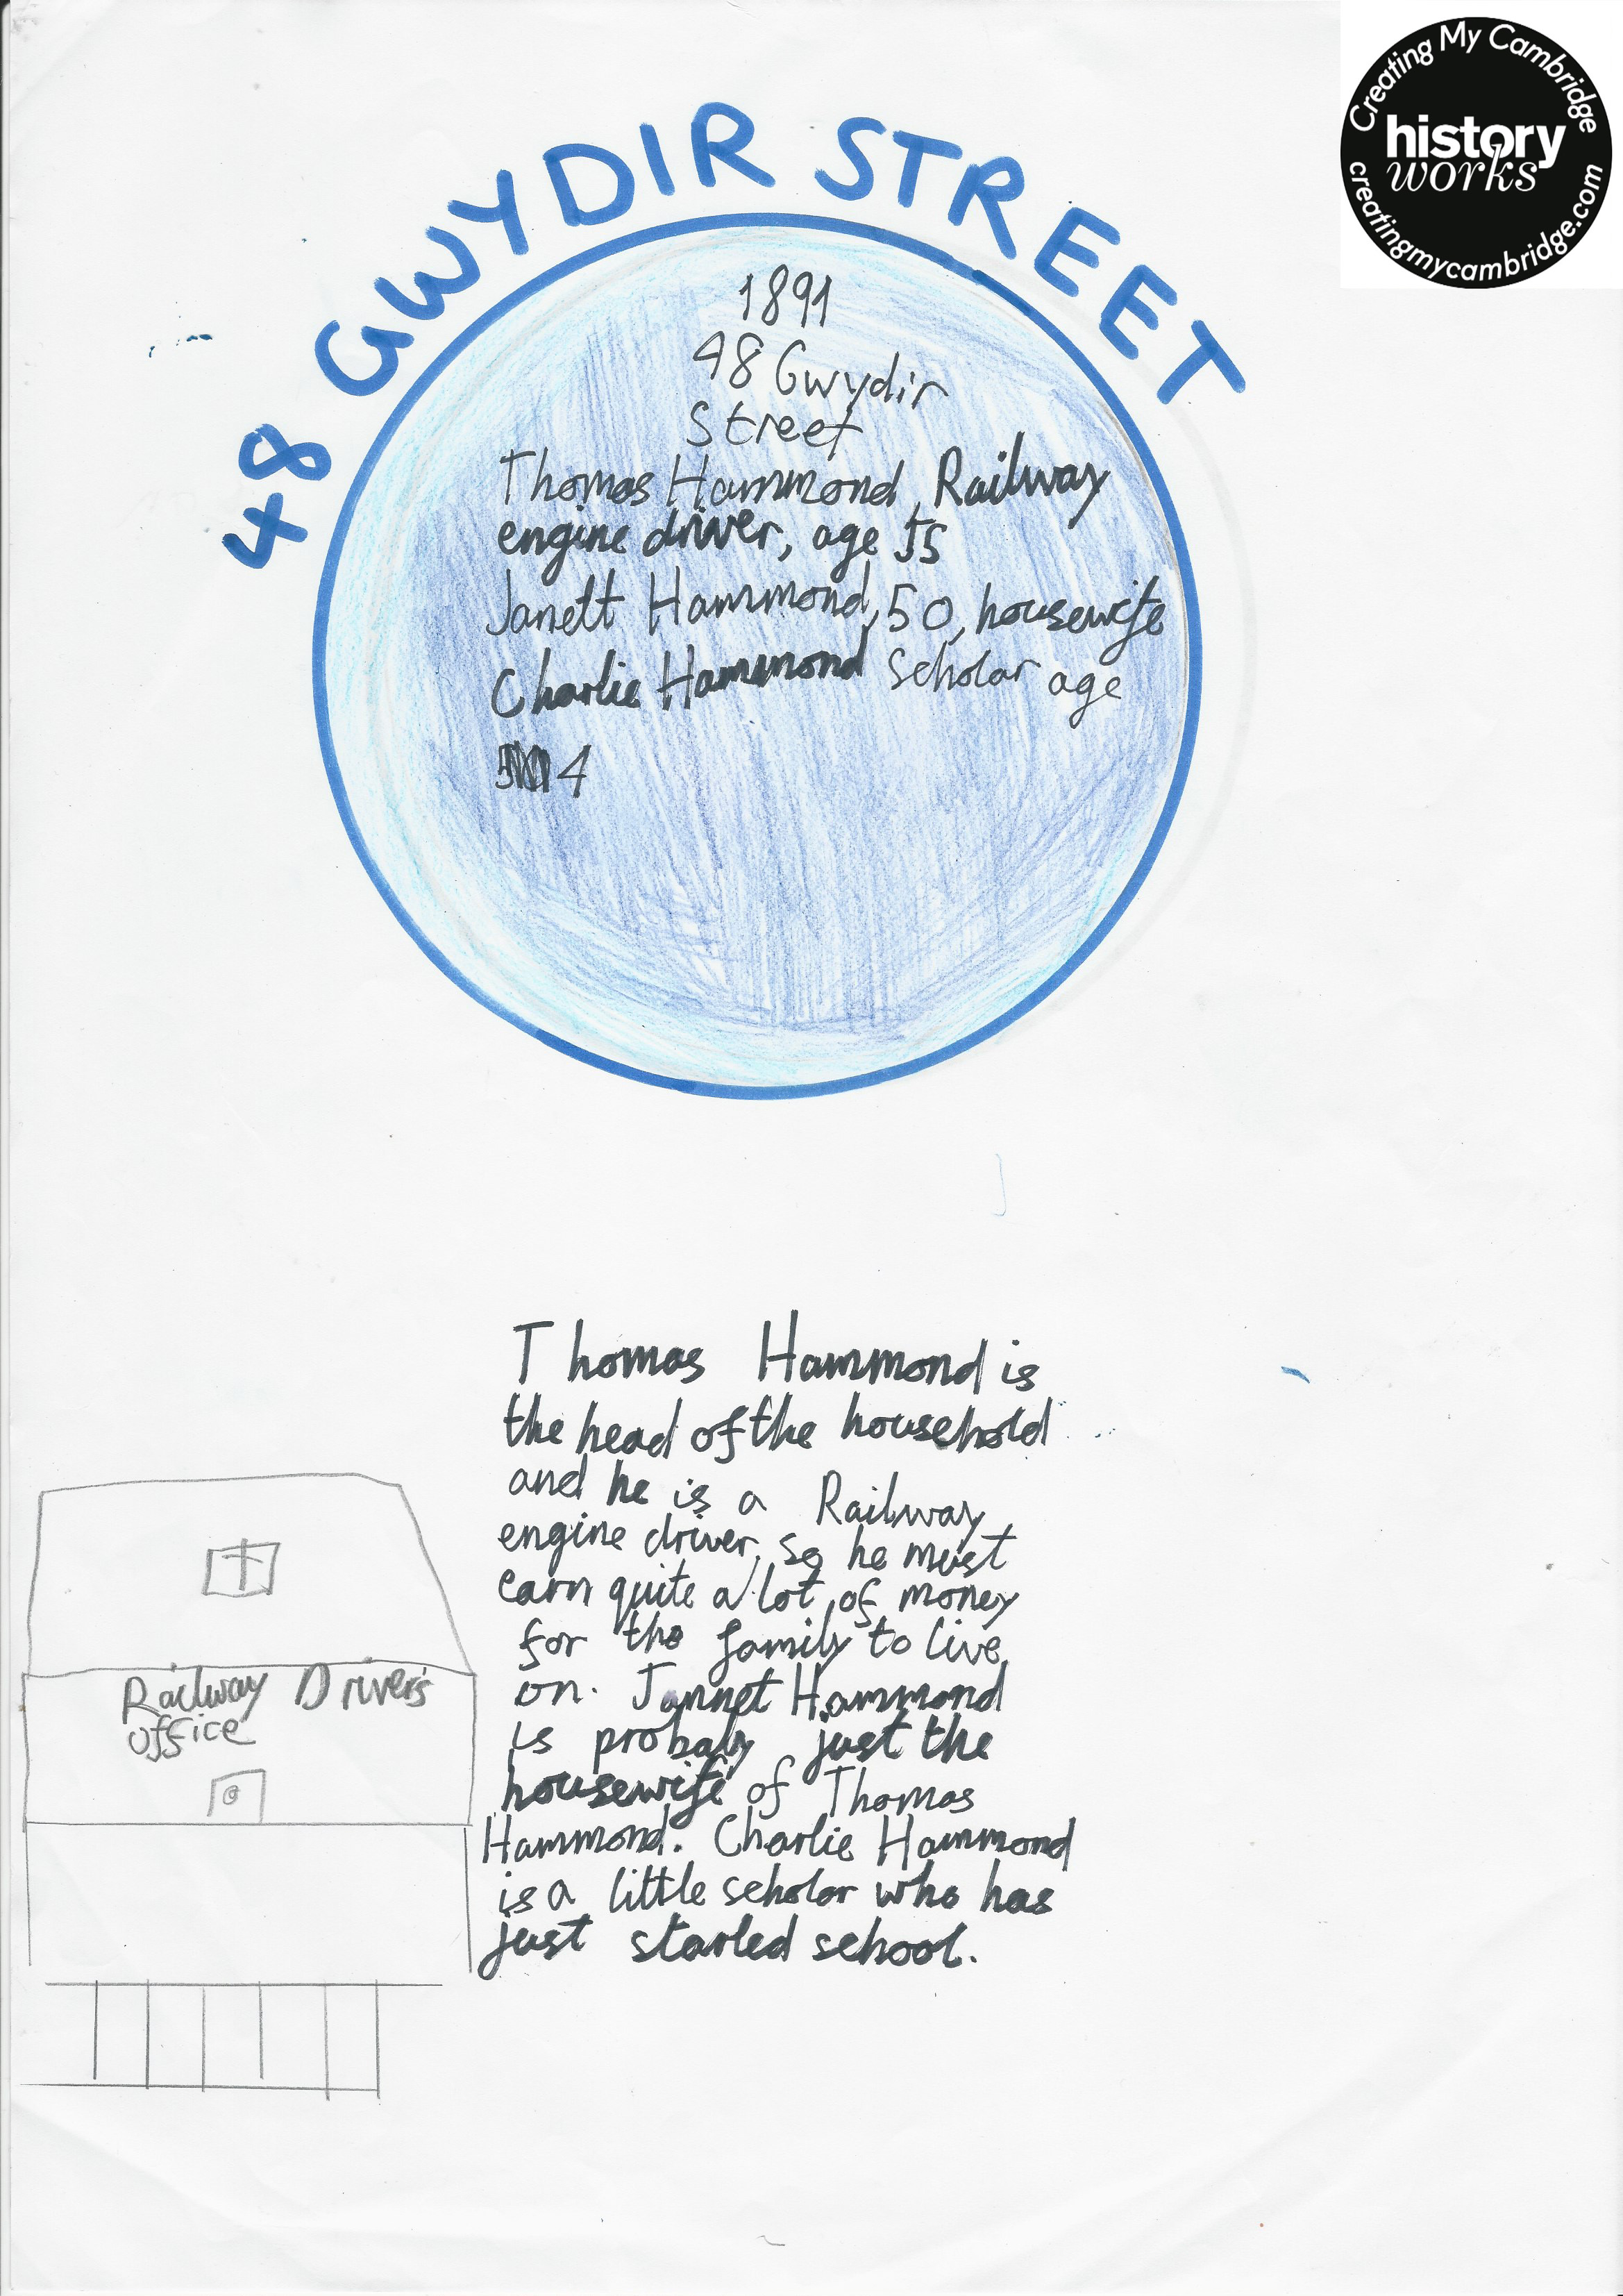 Creating My Cambridge
history
works
creatingmycambridge.com
48 GWYDIR STREET
1891
48 Gwydir
Street
Thomas Hammond, Railway
engine driver, age 55
Janett Hammond, 50, housewife
Charlie Hammond scholar age
4
Thomas Hammond is
the head of the household
and he is a Railway
engine driver, so he must
earn quite a lot of money
for the family to live
on. Jannet Hammond
is probaly just the
housewife of Thomas
Hammond. Charlie Hammond
is a little scholar who has
just started school.
Railway Driver's
office